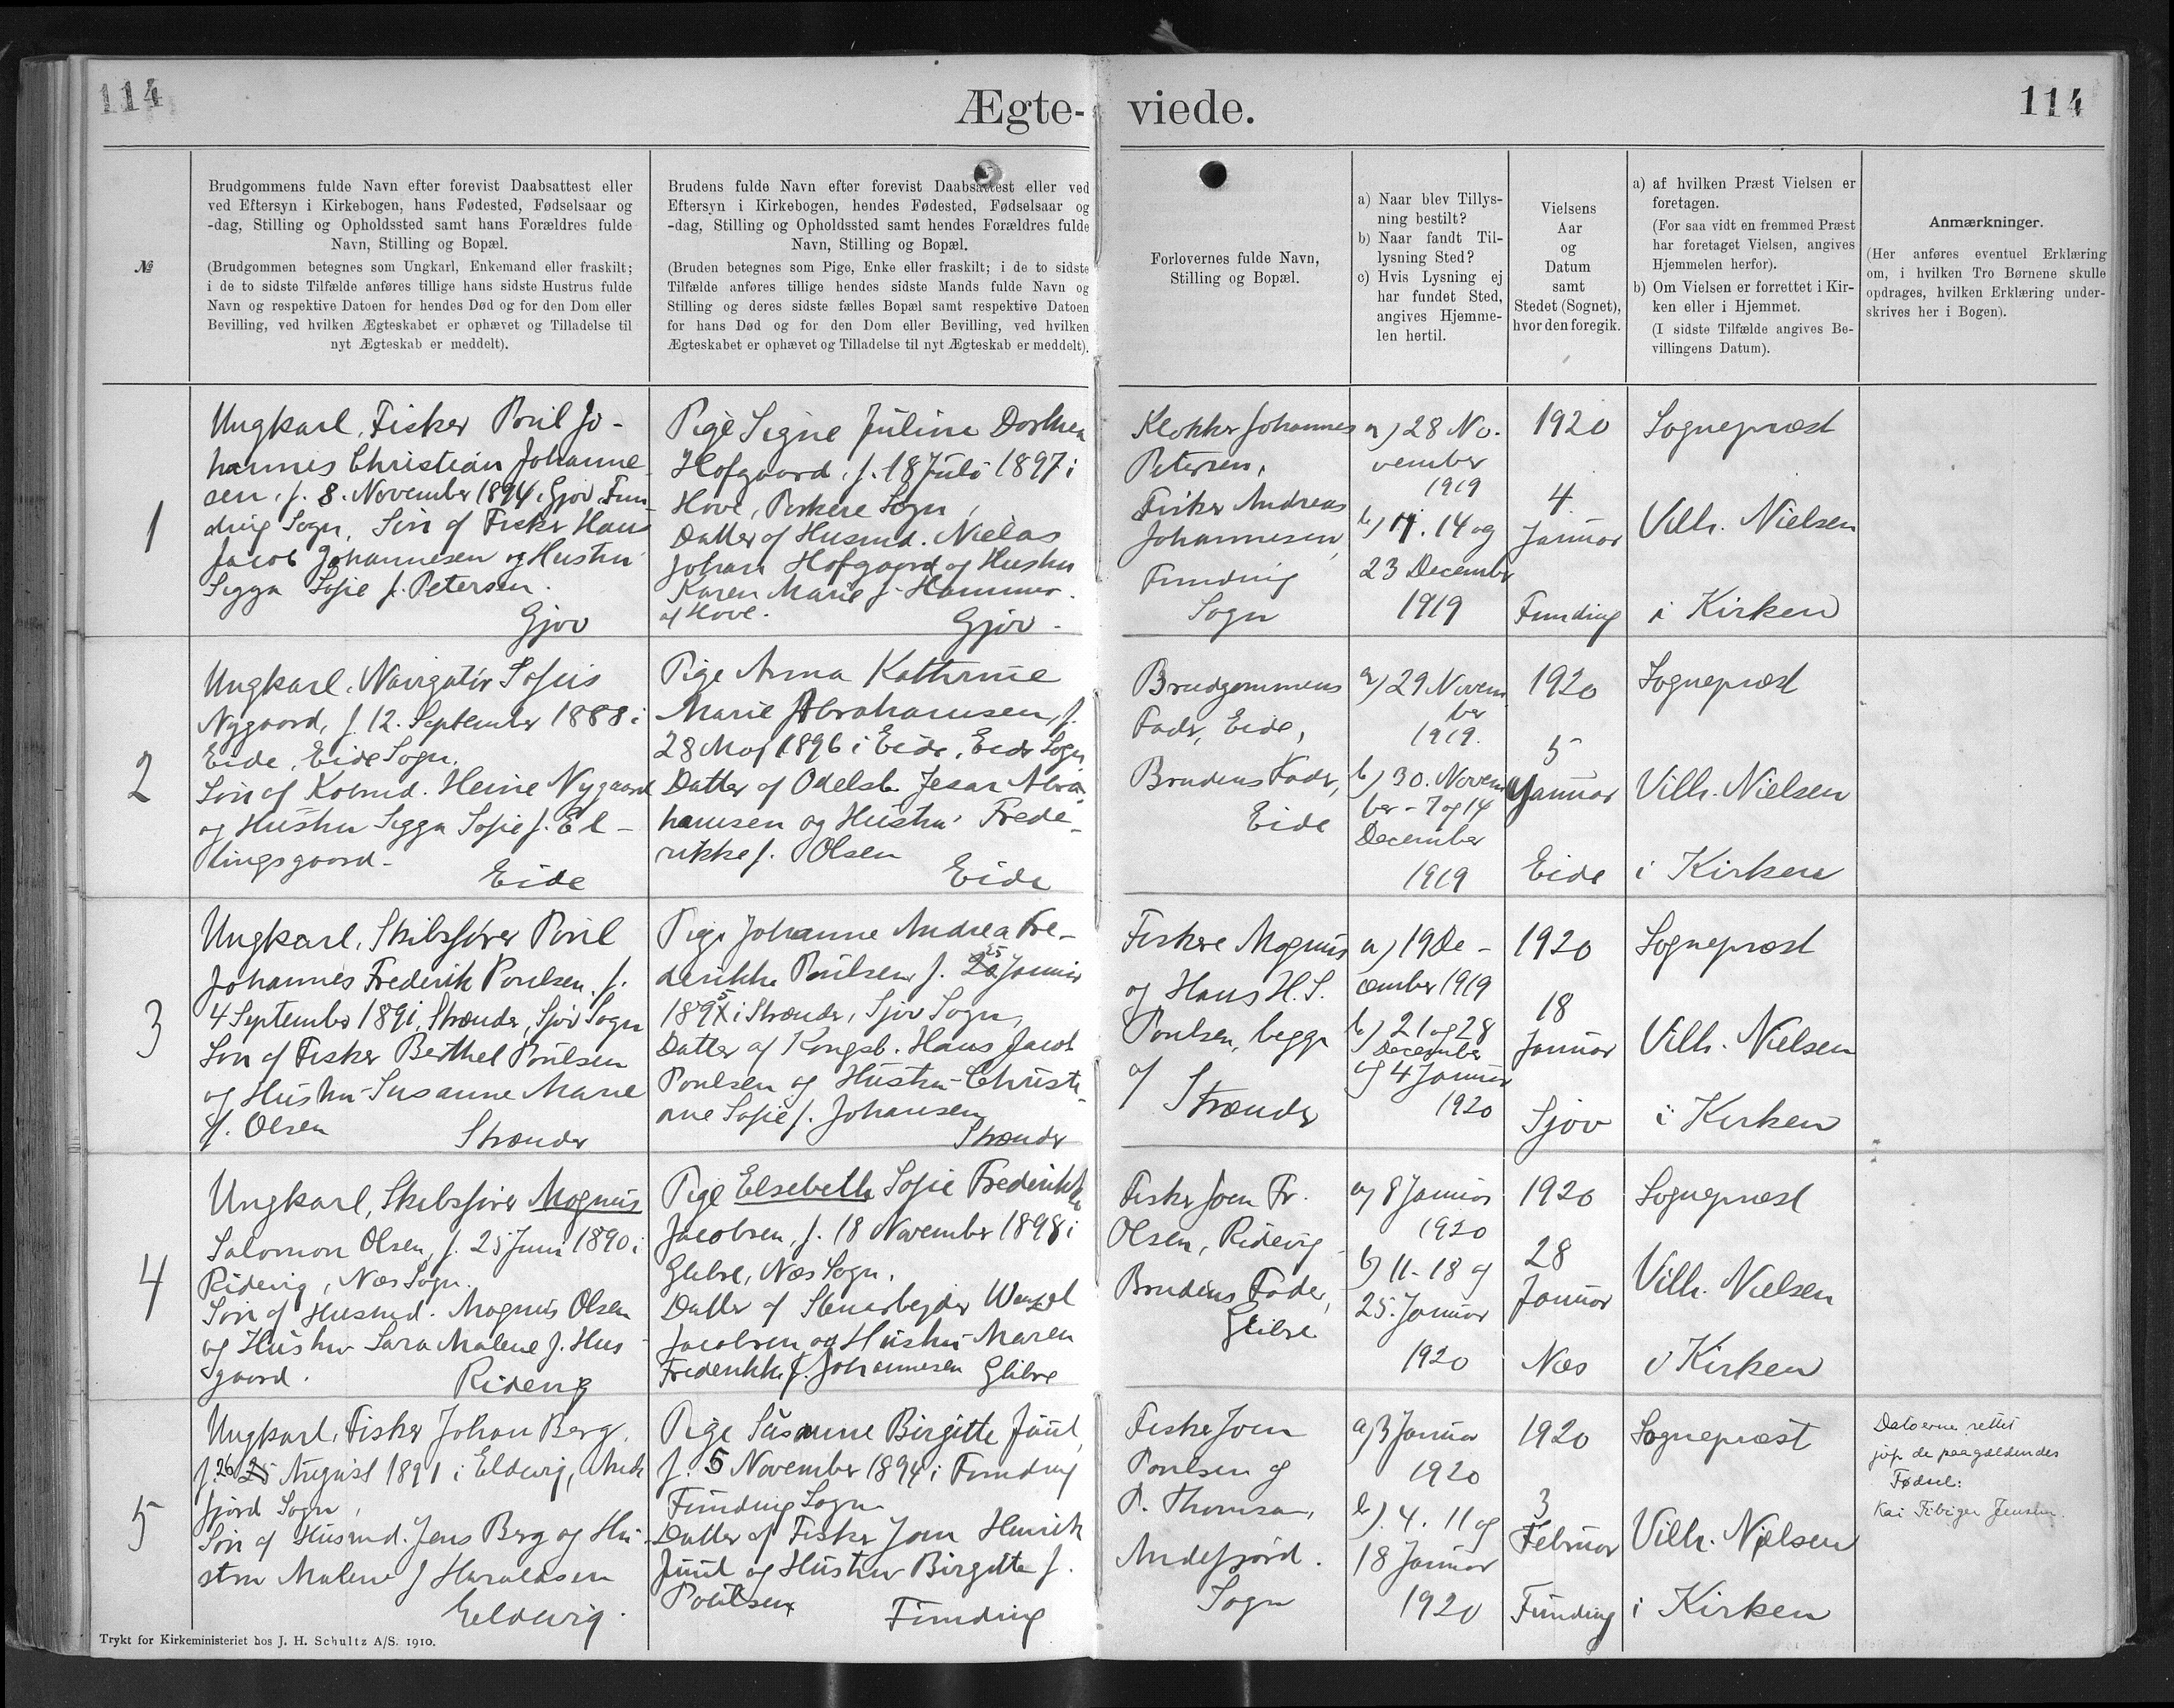 114
Ægte- viede.
114
№
Brudgommens fulde Navn efter forevist Daabsattest eller
ved Eftersyn i Kirkebogen, hans Fødested, Fødselsaar og
-dag, Stilling og Opholdssted samt hans Forældres fulde
Navn, Stilling og Bopæl.
(Brudgommen betegnes som Ungkarl, Enkemand eller fraskilt;
i de to sidste Tilfælde anføres tillige hans sidste Hustrus fulde
Navn og respektive Datoen for hendes Død og for den Dom eller
Bevilling, ved hvilken Ægteskabet er ophævet og Tilladelse til
nyt Ægteskab er meddelt).
Brudens fulde Navn efter forevist Daabsattest eller ved
Eftersyn i Kirkebogen, hendes Fødested, Fødselsaar og
-dag, Stilling og Opholdssted samt hendes Forældres fulde
Navn, Stilling og Bopæl.
(Bruden betegnes som Pige, Enke eller fraskilt; i de to sidste
Tilfælde anføres tillige hendes sidste Mands fulde Navn og
Stilling og deres sidste fælles Bopæl samt respektive Datoen
for hans Død og for den Dom eller Bevilling, ved hvilken
Ægteskabet er ophævet og Tilladelse til nyt Ægteskab er meddelt).
Forlovernes fulde Navn,
Stilling og Bopæl.
a) Naar blev Tillys-
ning bestilt?
b) Naar fandt Til-
lysning Sted?
c) Hvis Lysning ej
har fundet Sted,
angives Hjemme-
len hertil.
Vielsens
Aar
og
Datum
samt
Stedet (Sognet),
hvor den foregik.
a) af hvilken Præst Vielsen er
foretagen.
(For saa vidt en fremmed Præst
har foretaget Vielsen, angives
Hjemmelen herfor).
b) Om Vielsen er forrettet i Kir-
ken eller i Hjemmet.
(I sidste Tilfælde angives Be-
villingens Datum).
Anmærkninger.
(Her anføres eventuel Erklæring
om, i hvilken Tro Børnene skulle
opdrages, hvilken Erklæring under-
skrives her i Bogen).
1
Ungkarl, Fisker Poul Jo-
hannes Christian Johanne-
sen, f. 8. November 1894 i Gjov, Fun-
ding Sogn, Søn af Fisker Hans
Jacob Johannesen og Hustru
Sigga Sofie f. Petersen.
Gjov
Pige Signe Juline Dorthea
Hofgaard, f. 18 Juli 1897 i
Hove, Porkere Sogn,
Datter af Husmd. Niclas
Johan Hofgaard og Hustru
Karen Marie f. Hammer.
af Hove.
Gjov.
Klokker Johannes
Petersen,
Fisker Andreas
Johannesen,
Funding
Sogn
a) 28 No-
vember
1919
b) 7. 14 og
23 December
1919
1920
4.
Januar
Funding
Sognepræst
Vilh. Nielsen
i Kirken
2
Ungkarl, Navigatør Sofus
Nygaard, f. 12. September 1888 i
Eide, Eide Sogn.
Søn af Kobmd. Heine Nygaard
og Hustru Sigga Sofie f. El-
lingsgaard.
Eide
Pige Anna Kathrine
Marie Abrahamsen, f.
28 Maj 1896 i Eide, Eide Sogn
Datter af Odelsb. Jesar Abra-
hamsen og Hustru Frede-
rikke f. Olsen
Eide
Brudgommens
Fader, Eide,
Brudens Fader,
Eide
a) 29 Novem
ber
1919.
b) 30. Novem
ber - 7 og 14
December
1919
1920
5
Januar
Eide
Sognepræst
Vilh. Nielsen
i Kirken
3
Ungkarl, Skibsfører Poul
Johannes Frederik Poulsen, f.
4 September 1891, Strænder, Sjov Sogn
Søn af Fisker Berthel Poulsen
og Hustru Susanne Marie
f. Olsen
Strænder
Pige Johanne Andrea Fre-
25
derikke Poulsen f. 20 Januar
1895 i Strænder, Sjov Sogn,
Datter af Kongsb. Hans Jacob
Poulsen og Hustru Christi-
ane Sofie f. Johansen
Strænder
Fiskere Magnus
og Hans H. S.
Poulsen, begge
af Strænder
a) 19 De-
cember 1919
b) 21 og 28
December
og 4 Januar
1920
1920
18
Januar
Sjov
Sognepræst
Vilh. Nielsen
i Kirken
4
Ungkarl, Skibsfører Magnus
Salomon Olsen, f. 25 Juni 1890 i
Ridevig, Næs Sogn.
Søn af Husmd. Magnus Olsen
og Hustru Sara Malene f. Hus-
gaard.
Ridevig
Pige Elsebeth Sofie Frederikke
Jacobsen, f. 18 November 1898 i
Glibre, Næs Sogn.
Datter af Stenarbejder Wenzel
Jacobsen og Hustru Maren
Frederikke f. Johannesen Glibre
Fisker Joen Fr.
Olsen, Ridevig
Brudens Fader,
Glibre
a) 8 Januar
1920
b) 11-18 og
25. Januar
1920
1920
28
Januar
Næs
Sognepræst
Vilh. Nielsen
i Kirken
5
Ungkarl, Fisker Johan Berg,
f. 26 25 August 1891 i Eldevig, Ande
fjord Sogn,
Søn af Husmd. Jens Berg og Hu-
stru Malene f Haraldsen
Eldevig.
Pige Susanne Birgitte Juul,
f. 5 November 1894 i Funding
Funding Sogn
Datter af Fisker Joen Henrik
Juul og Hustru Birgitte f.
Poulsen
Funding
Fisker Joen
Poulsen og
P. Thomsen,
Andefjord.
Sogn
a) 3 Januar
1920
b) 4. 11 og
18 Januar
1920
1920
3
Februar
Funding
Sognepræst
Vilh. Nielsen
i Kirken
Datoerne rettet
jvf. de paagældendes
Fødsel:
Kai Fibiger Jensen.
Trykt for Kirkeministeriet hos J. H. Schultz A/S. 1910.